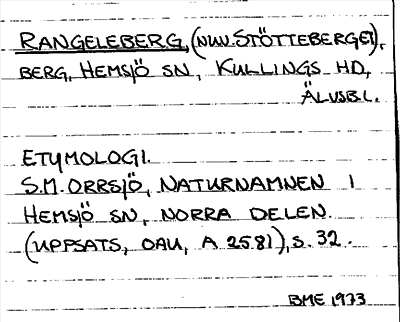 RANGELEBERG, (NUV. STÖTTEBERGET),
BERG, HEMSJÖ SN, KULLINGS HD,
ÄLVSB. L.
ETYMOLOGI.
S.M. ORRSJÖ, NATURNAMNEN I
HEMSJÖ SN, NORRA DELEN.
(UPPSATS, OAU, A 2581), S. 32.
BME 1973